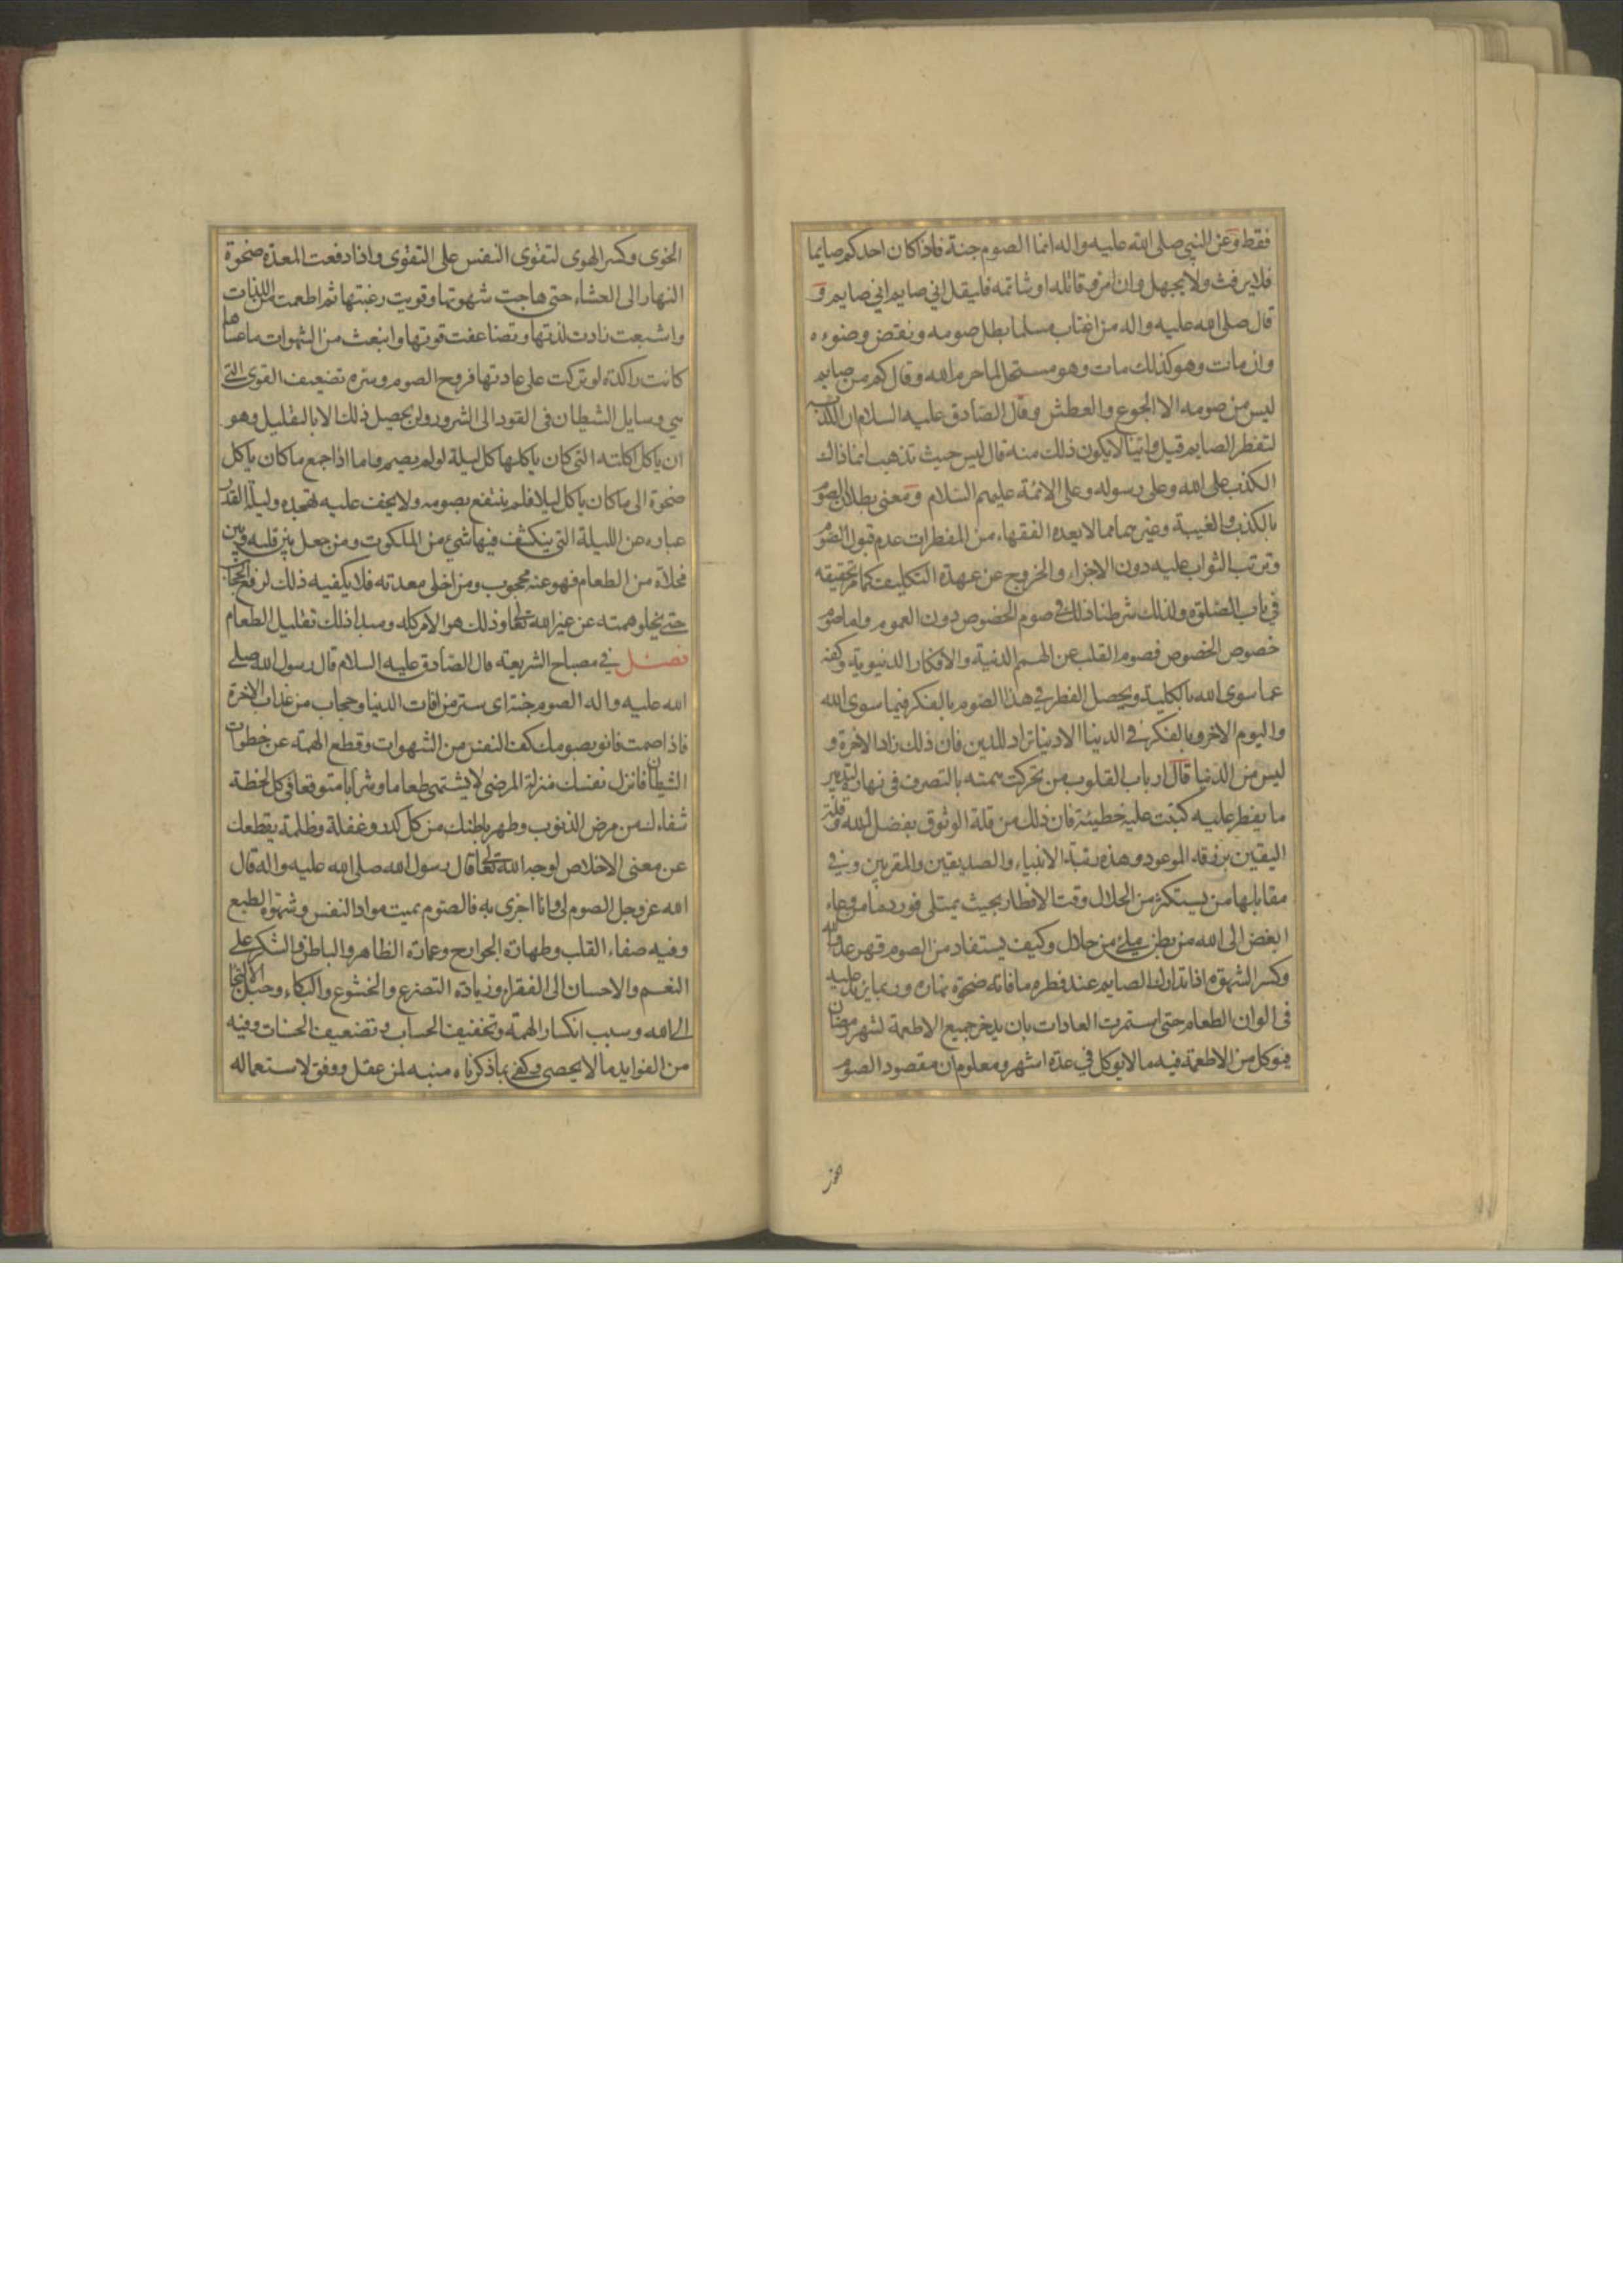 فقط وعن النبي صلى الله عليه واله انما الصوم جنة فاذا كان احدكم صايما
فلا يرفث ولا يجهل وان امرؤ قاتله او شاتمه فليقل اني صايم اني صايم و
قال صلى الله عليه واله من اغتاب مسلما بطل صومه ونقض وضوءه
وان مات وهو كذلك مات وهو مستحل لما حرم الله وقال كم من صايم
ليس من صومه الا الجوع والعطش وقال الصادق عليه السلام ان الكذبة
لتفطر الصايم قيل واينا لا يكون ذلك منه قال ليس حيث تذهب انما ذاك
الكذب على الله وعلى رسوله وعلى الائمة عليهم السلام ومعنى بطلان الصوم
بالكذب والغيبة وغيرهما مما لا يعده الفقهاء من المفطرات عدم قبول الصوم
وترتب الثواب عليه دون الاجزاء والخروج عن عهدة التكليف كما مر تحقيقه
في باب الصلوة ولذلك شرطنا ذلك في صوم الخصوص دون العموم واما صوم
خصوص الخصوص فصوم القلب عن الهمم الدنية والافكار الدنيوية وكفه
عما سوى الله بالكلية ويحصل الفطر في هذا الصوم بالفكر فيما سوى الله
واليوم الاخر وبالفكر في الدينا الا دنيا تراد للدين فان ذلك زاد الاخرة و
ليس من الدنيا قال ارباب القلوب من تحركت همته بالتصرف في نهاره لتدبير
ما يفطر عليه كتبت عليه خطيئة فان ذلك من قلة الوثوق بفضل الله وقلة
اليقين برزقه الموعود وهذه رتبة الانبياء والصديقين والمقربين وفي
مقابلها من يستكثر من الحلال وقت الافطار بحيث يمتلى فورد ما من وعاء
ابغض الى الله من بطن ملئ من حلال وكيف يستفاد من الصوم قهر عدو الله
وكسر الشهوة اذا تدارك الصايم عند فطره ما فاته ضحوة نهاره وربما يزيد عليه
في الوان الطعام حتى استمرت العادات بان يدخر جميع الاطعمة لشهر رمضان
فيوكل من الاطعمة فيه ما لا يوكل في عدة اشهر ومعلوم ان مقصود الصوم
الخوى وكسر الهوى لتقوى النفس على التقوى واذا دفعت المعدة ضحوة
النهار الى العشاء حتى هاجت شهوتها وقويت رغبتها ثم اطعمت من اللذات
واشبعت زادت لذتها وتضاعفت قوتها وانبعث من الشهوات ما عساها
كانت راكدة لو تركت على عادتها فروح الصوم وسره تضعيف القوى التي
هي وسايل الشيطان في القود الى الشرور ولن يحصل ذلك الا بالتقليل وهو
ان ياكل اكلته التي كان ياكلها كل ليلة لو لم يصم واما اذا جمع ما كان ياكل
ضحوة الى ما كان ياكل ليلا فلم ينتفع بصومه ولا يخف عليه تهجده وليلة القدر
عباره عن الليلة التي ينكشف فيها شيء من الملكوت ومن جعل بين قلبه وبين
مخلاة من الطعام فهو عنه محجوب ومن اخلى معدته فلا يكفيه ذلك لرفع الحجاب
حتى يخلو همته عن غير الله تعالى وذلك هو الامر كله ومبدا ذلك تقليل الطعام
فصل في مصباح الشريعة قال الصادق عليه السلام قال رسول الله صلى
الله عليه واله الصوم جنة اى ستر من افات الدنيا وحجاب من عذاب الاخرة
فاذا صمت فانو بصومك كف النفس من الشهوات وقطع الهمة عن خطوات
الشيطان فانزل نفسك منزلة المرضى لا يشتهى طعاما وشرابا متوقعا في كل لحظة
شفاءك من مرض الذنوب وطهر باطنك من كل كدر وغفلة وظلمة يقطعك
عن معنى الاخلاص لوجه الله تعالى قال رسول الله صلى الله عليه واله قال
الله عز وجل الصوم لي وانا اجزى به فالصوم يميت مواد النفس وشهوة الطبع
وفيه صفاء القلب وطهارة الجوارح وعمارة الظاهر والباطن والشكر على
النعم والاحسان الى الفقراء وزيادة التضرع والخشوع والبكاء وحبل الالتجا
الى الله وسبب انكسار الهمة وتخفيف الحساب وتضعيف الحسنات وفيه
من الفوايد ما لا يحصى وكفى بما ذكرناه منبه لمن عقل ووفق لاستعماله